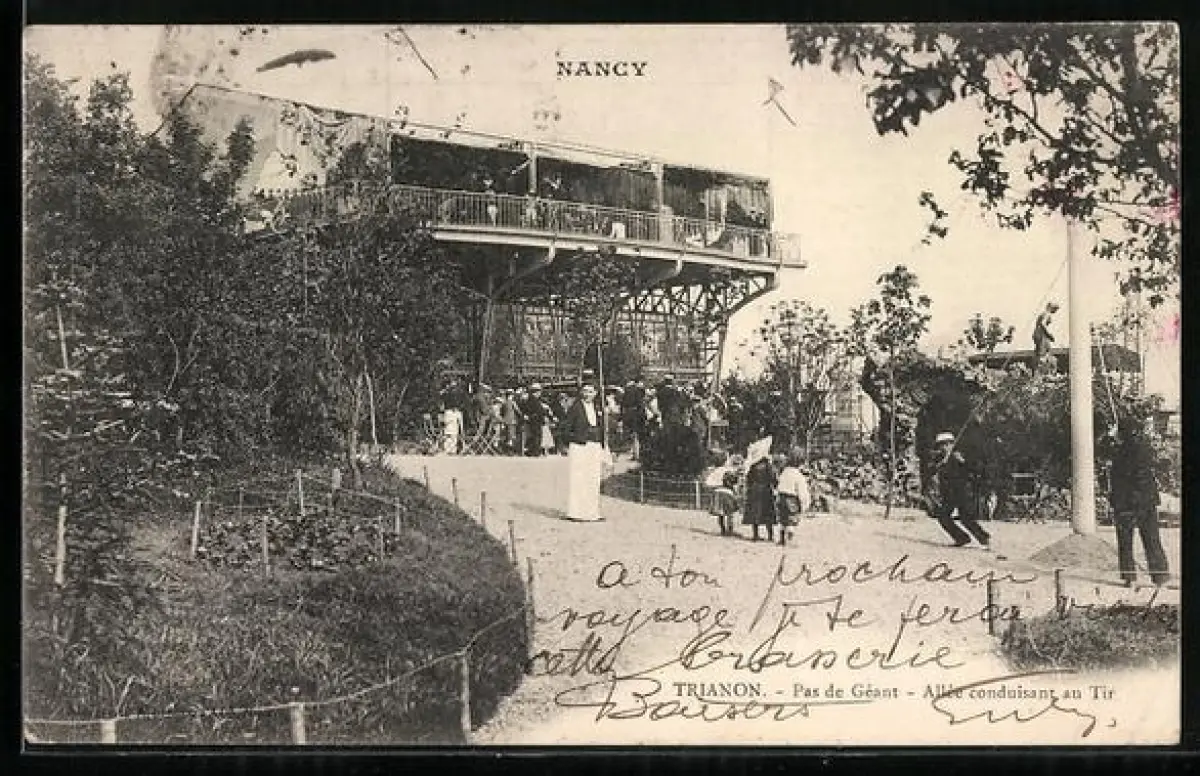 NANCY
a ton prochain
voyage je te ferai visiter
cette Brasserie
TRIANON. - Pas de Géant - Allée conduisant au Tir
Baisers